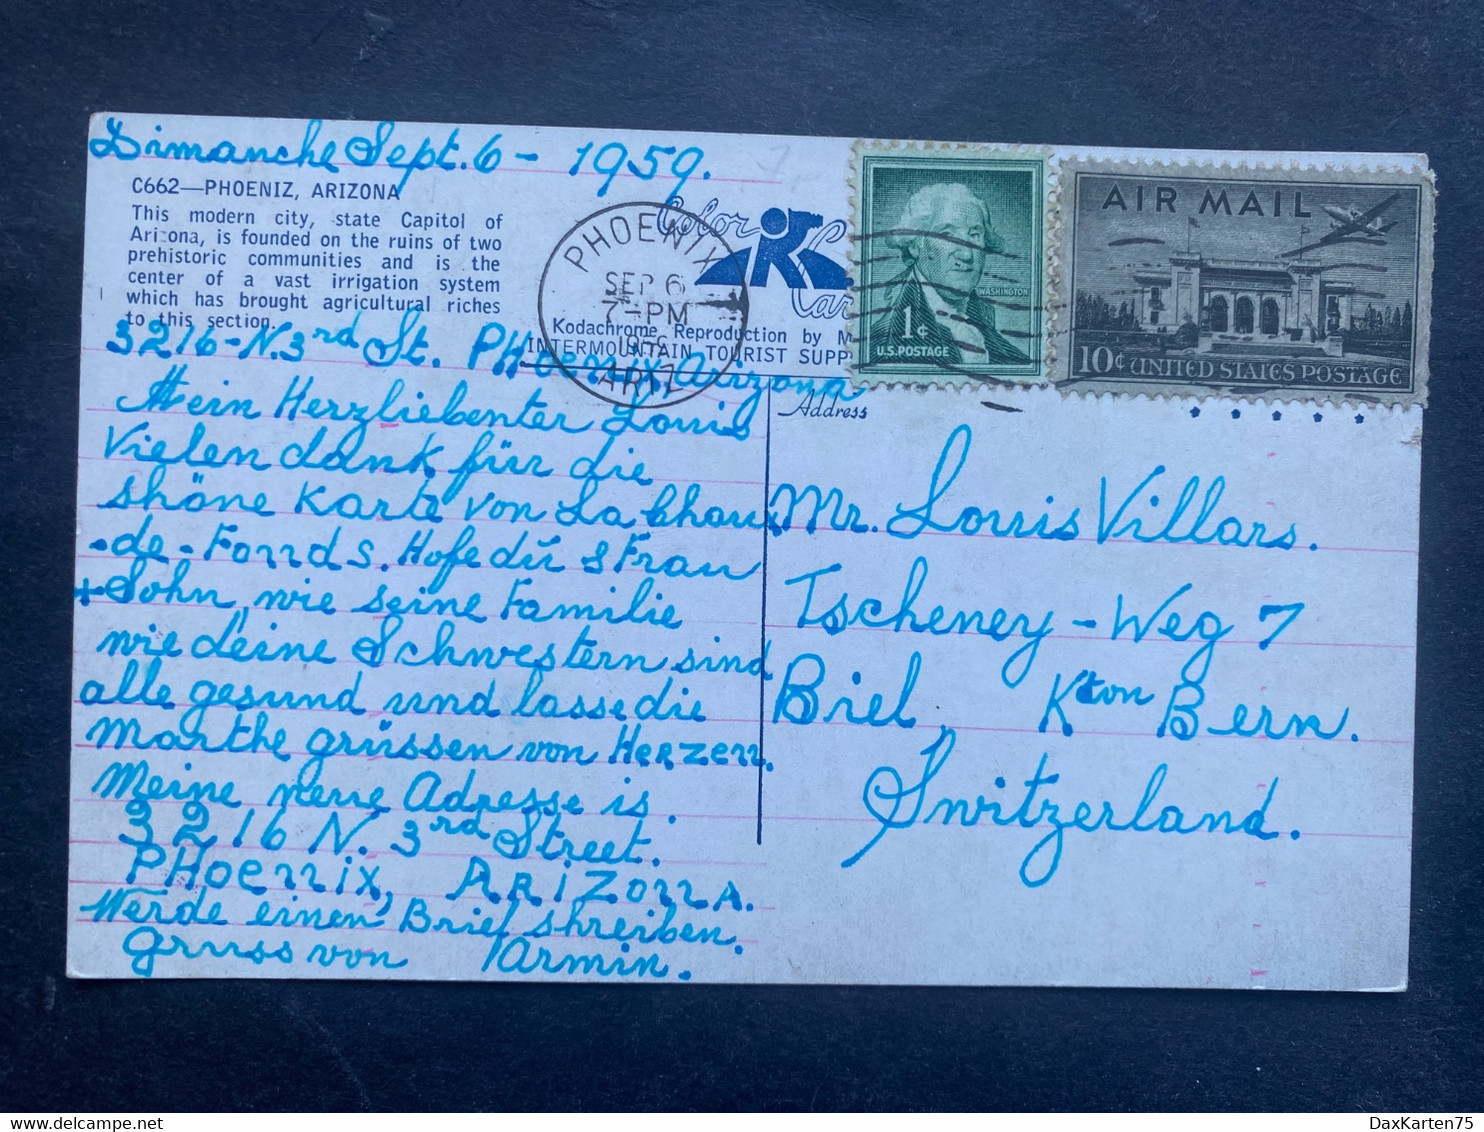 Dimanche Sept. 6 - 1959.
C662—PHOENIZ, ARIZONA
This modern city, state Capitol of
Arizona, is founded on the ruins of two
prehistoric communities and is the
center of a vast irrigation system
which has brought agricultural riches
to this section.
Color
PHOENIX
SEP 6
7-PM
ARIZ.
Kodachrome Reproduction by M
INTERMOUNTAIN TOURIST SUPP
WASHINGTON
1¢
U.S. POSTAGE
AIR MAIL
10¢ UNITED STATES POSTAGE
3216-N. 3rd St. PHoenix, Arizona
Mein Herzliebenter Louis
Vielen dank für die
shöne Karte von La Chau
-de-Fonds. Hofe dü s Frau
+ Sohn, wie seine Familie
wie deine Schwestern sind
alle gesund und lasse die
Marthe grüssen von Herzen.
Meine neue Adresse is.
3216 N. 3rd Street.
PHoenix, ARiZona.
Werde einen Brief shreiben.
Gruss von Armin.
Address
Mr. Louis Villars.
Tscheney-Weg 7
Biel, Kton Bern.
Switzerland.
DaxKarten75